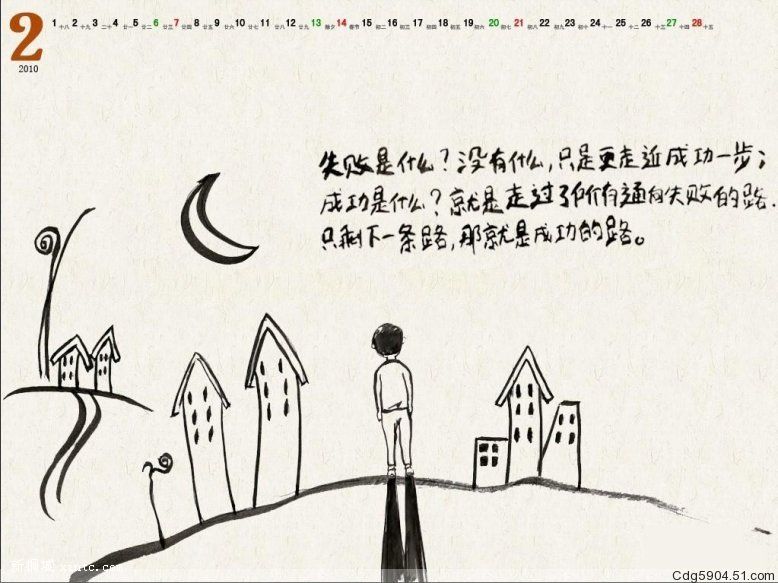 2
2010
1 十八 2 十九 3 二十 4 廿一 5 廿二 6 廿三 7 廿四 8 廿五 9 廿六 10 廿七 11 廿八 12 廿九 13 除夕 14 春节 15 初二 16 初三 17 初四 18 初五 19 初六 20 初七 21 初八 22 初九 23 初十 24 十一 25 十二 26 十三 27 十四 28 十五
失败是什么？没有什么，只是更走近成功一步；
成功是什么？就是走过了所有通向失败的路.
只剩下一条路，那就是成功的路。
Cdg5904.51.com